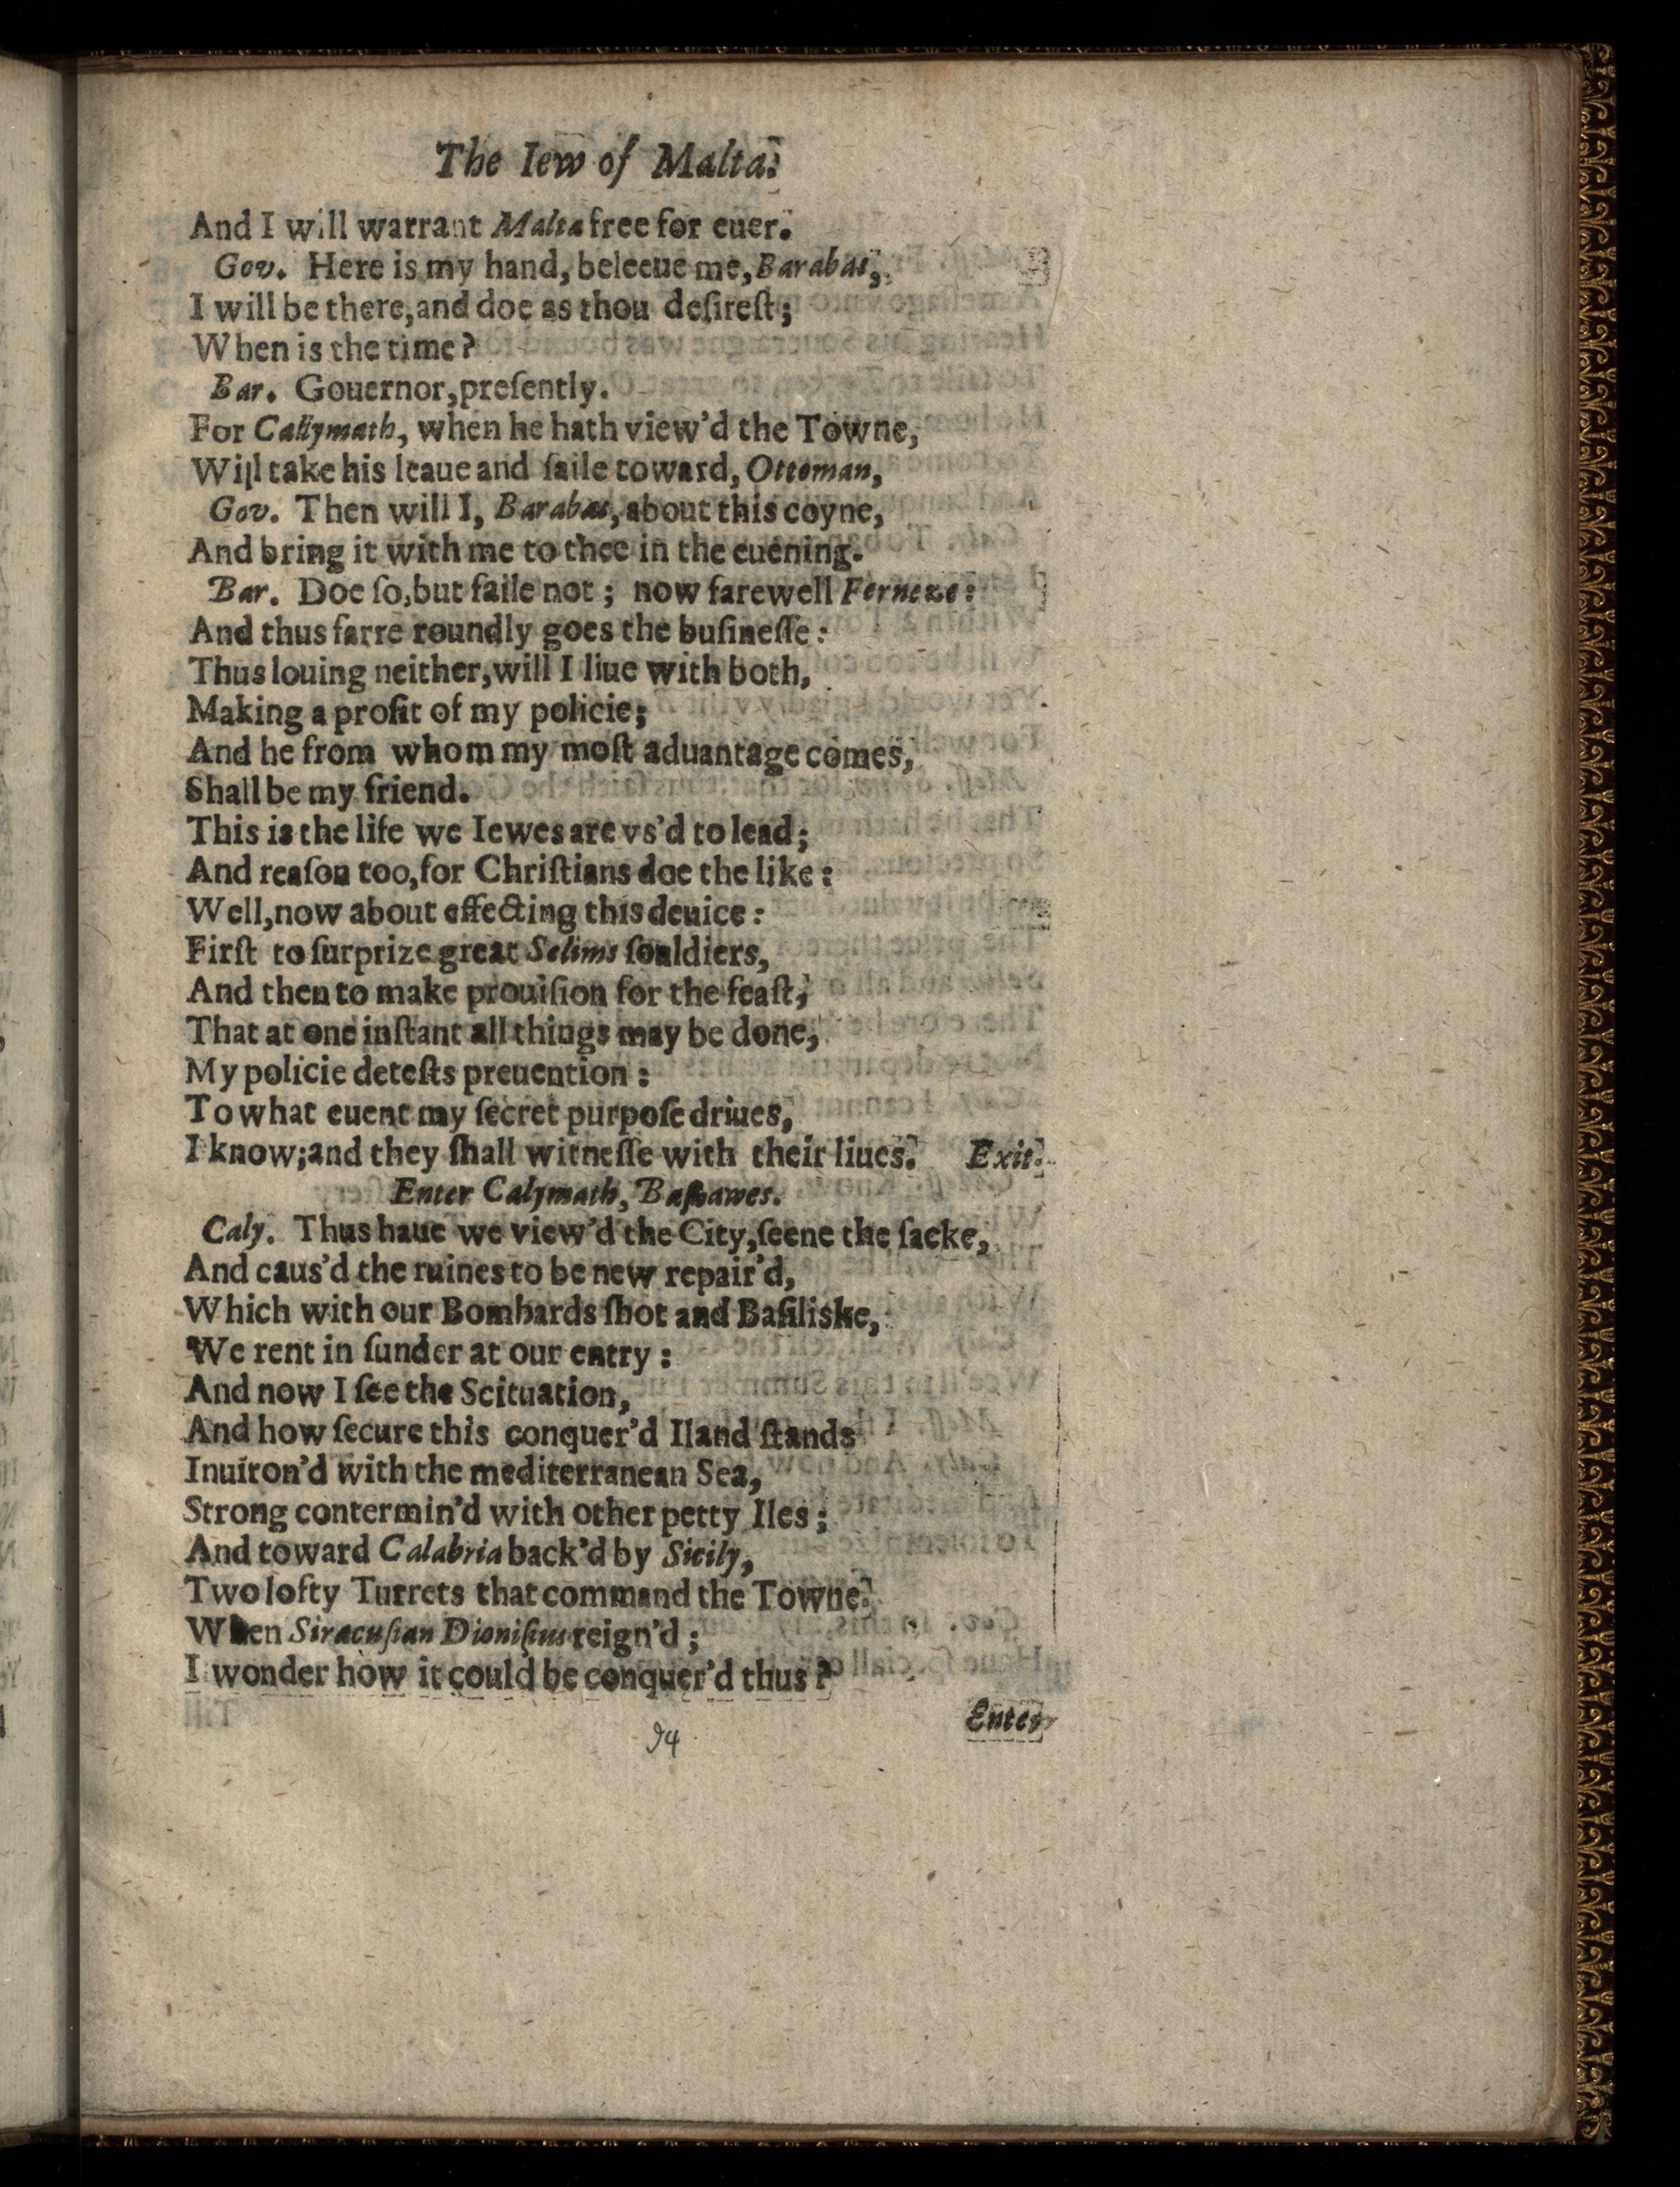 The Iew of Malta.
And I will warrant Malta free for euer.
Gov. Here is my hand, beleeue me, Barabas,
I will be there, and doe as thou deſireſt;
When is the time?
Bar. Gouernor, preſently.
For Callymath, when he hath view'd the Towne,
Will take his leaue and ſaile toward, Ottoman,
Gov. Then will I, Barabas, about this coyne,
And bring it with me to thee in the euening.
Bar. Doe ſo, but faile not; now farewell Ferneze:
And thus farre roundly goes the buſineſſe:
Thus louing neither, will I liue with both,
Making a profit of my policie;
And he from whom my moſt aduantage comes,
Shall be my friend.
This is the life we Iewes are vs'd to lead;
And reaſon too, for Chriſtians doe the like:
Well, now about effecting this deuice:
Firſt to ſurprize great Selims ſouldiers,
And then to make prouiſion for the feaſt,
That at one inſtant all things may be done,
My policie deteſts preuention:
To what euent my ſecret purpoſe driues,
I know; and they ſhall witneſſe with their liues. Exit.
Enter Calymath, Baſhawes.
Caly. Thus haue we view'd the City, ſeene the ſacke,
And caus'd the ruines to be new repair'd,
Which with our Bombards ſhot and Baſiliske,
We rent in ſunder at our entry:
And now I ſee the Scituation,
And how ſecure this conquer'd Iland ſtands
Inuiron'd with the mediterranean Sea,
Strong contermin'd with other petty Iles;
And toward Calabria back'd by Sicily,
Two lofty Turrets that command the Towne.
When Siracuſian Dioniſius reign'd;
I wonder how it could be conquer'd thus?
94
Enter